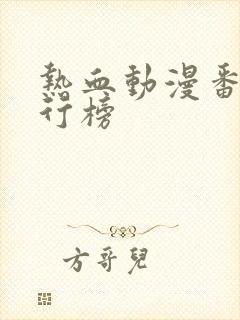 熱血動漫番
行榜
方哥兒